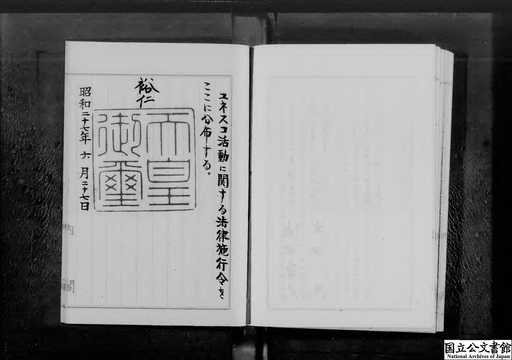 ユネスコ活動に関する法律施行令を
ここに公布する。
裕仁
天皇
御璽
昭和二十七年六月二十七日
内閣
国立公文書館
National Archives of Japan